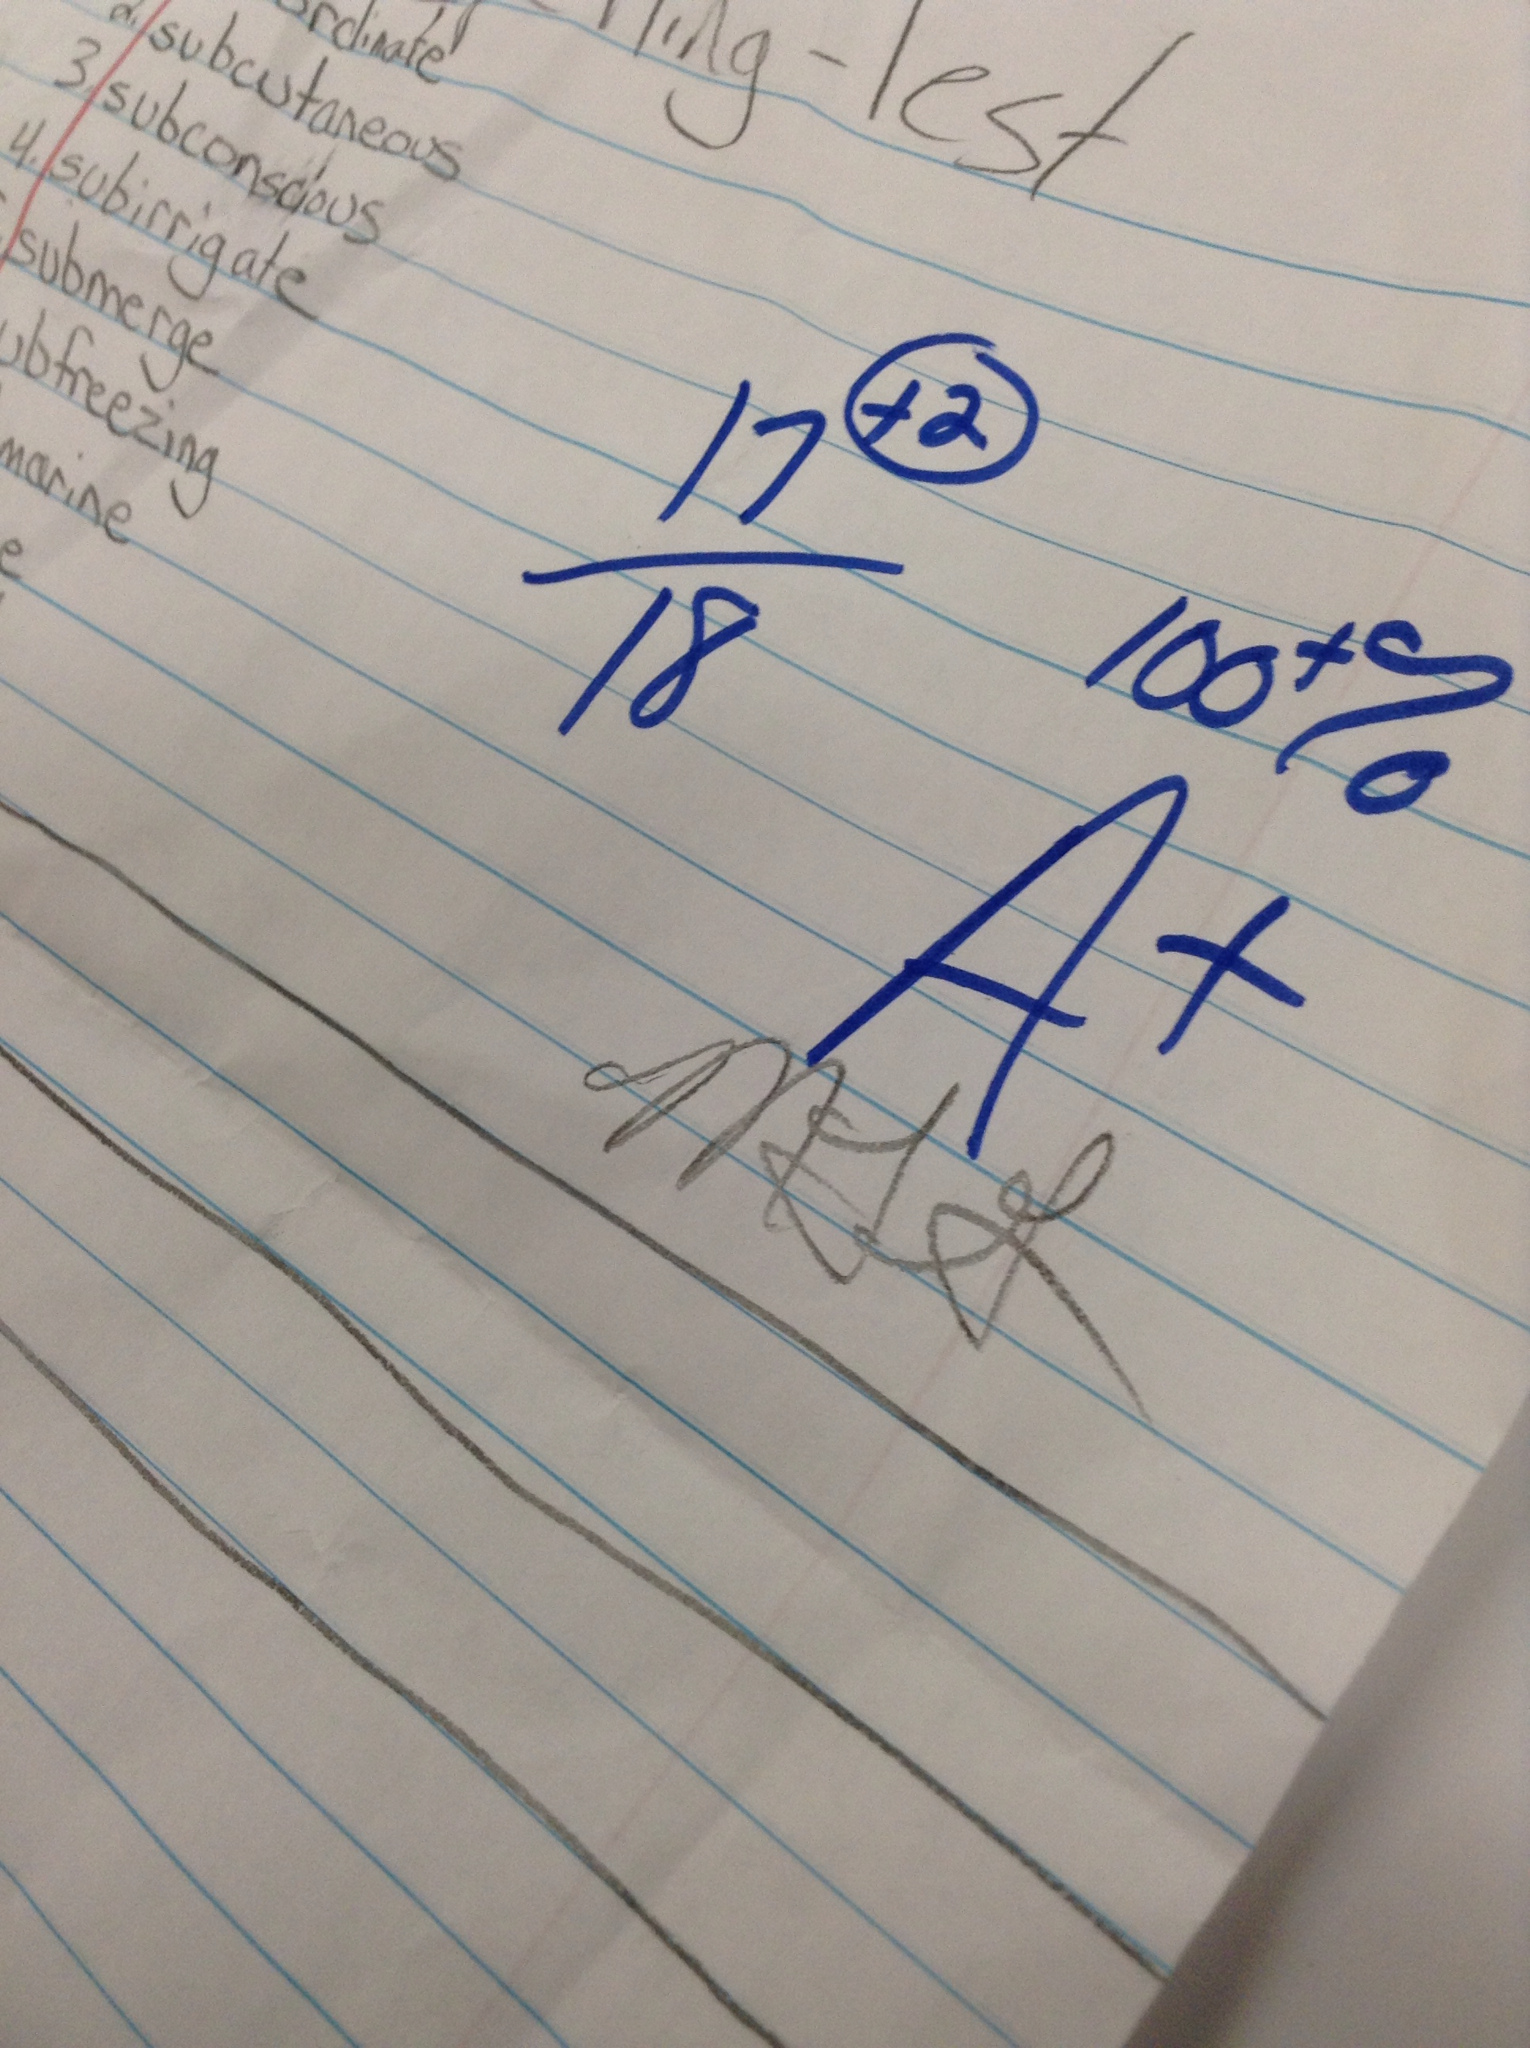 -Test
ordinate
2. subcutaneous
3. subconscious
4. subirrigate
submerge
ubfreezing
marine
e
17 +2
18
100+%
A+